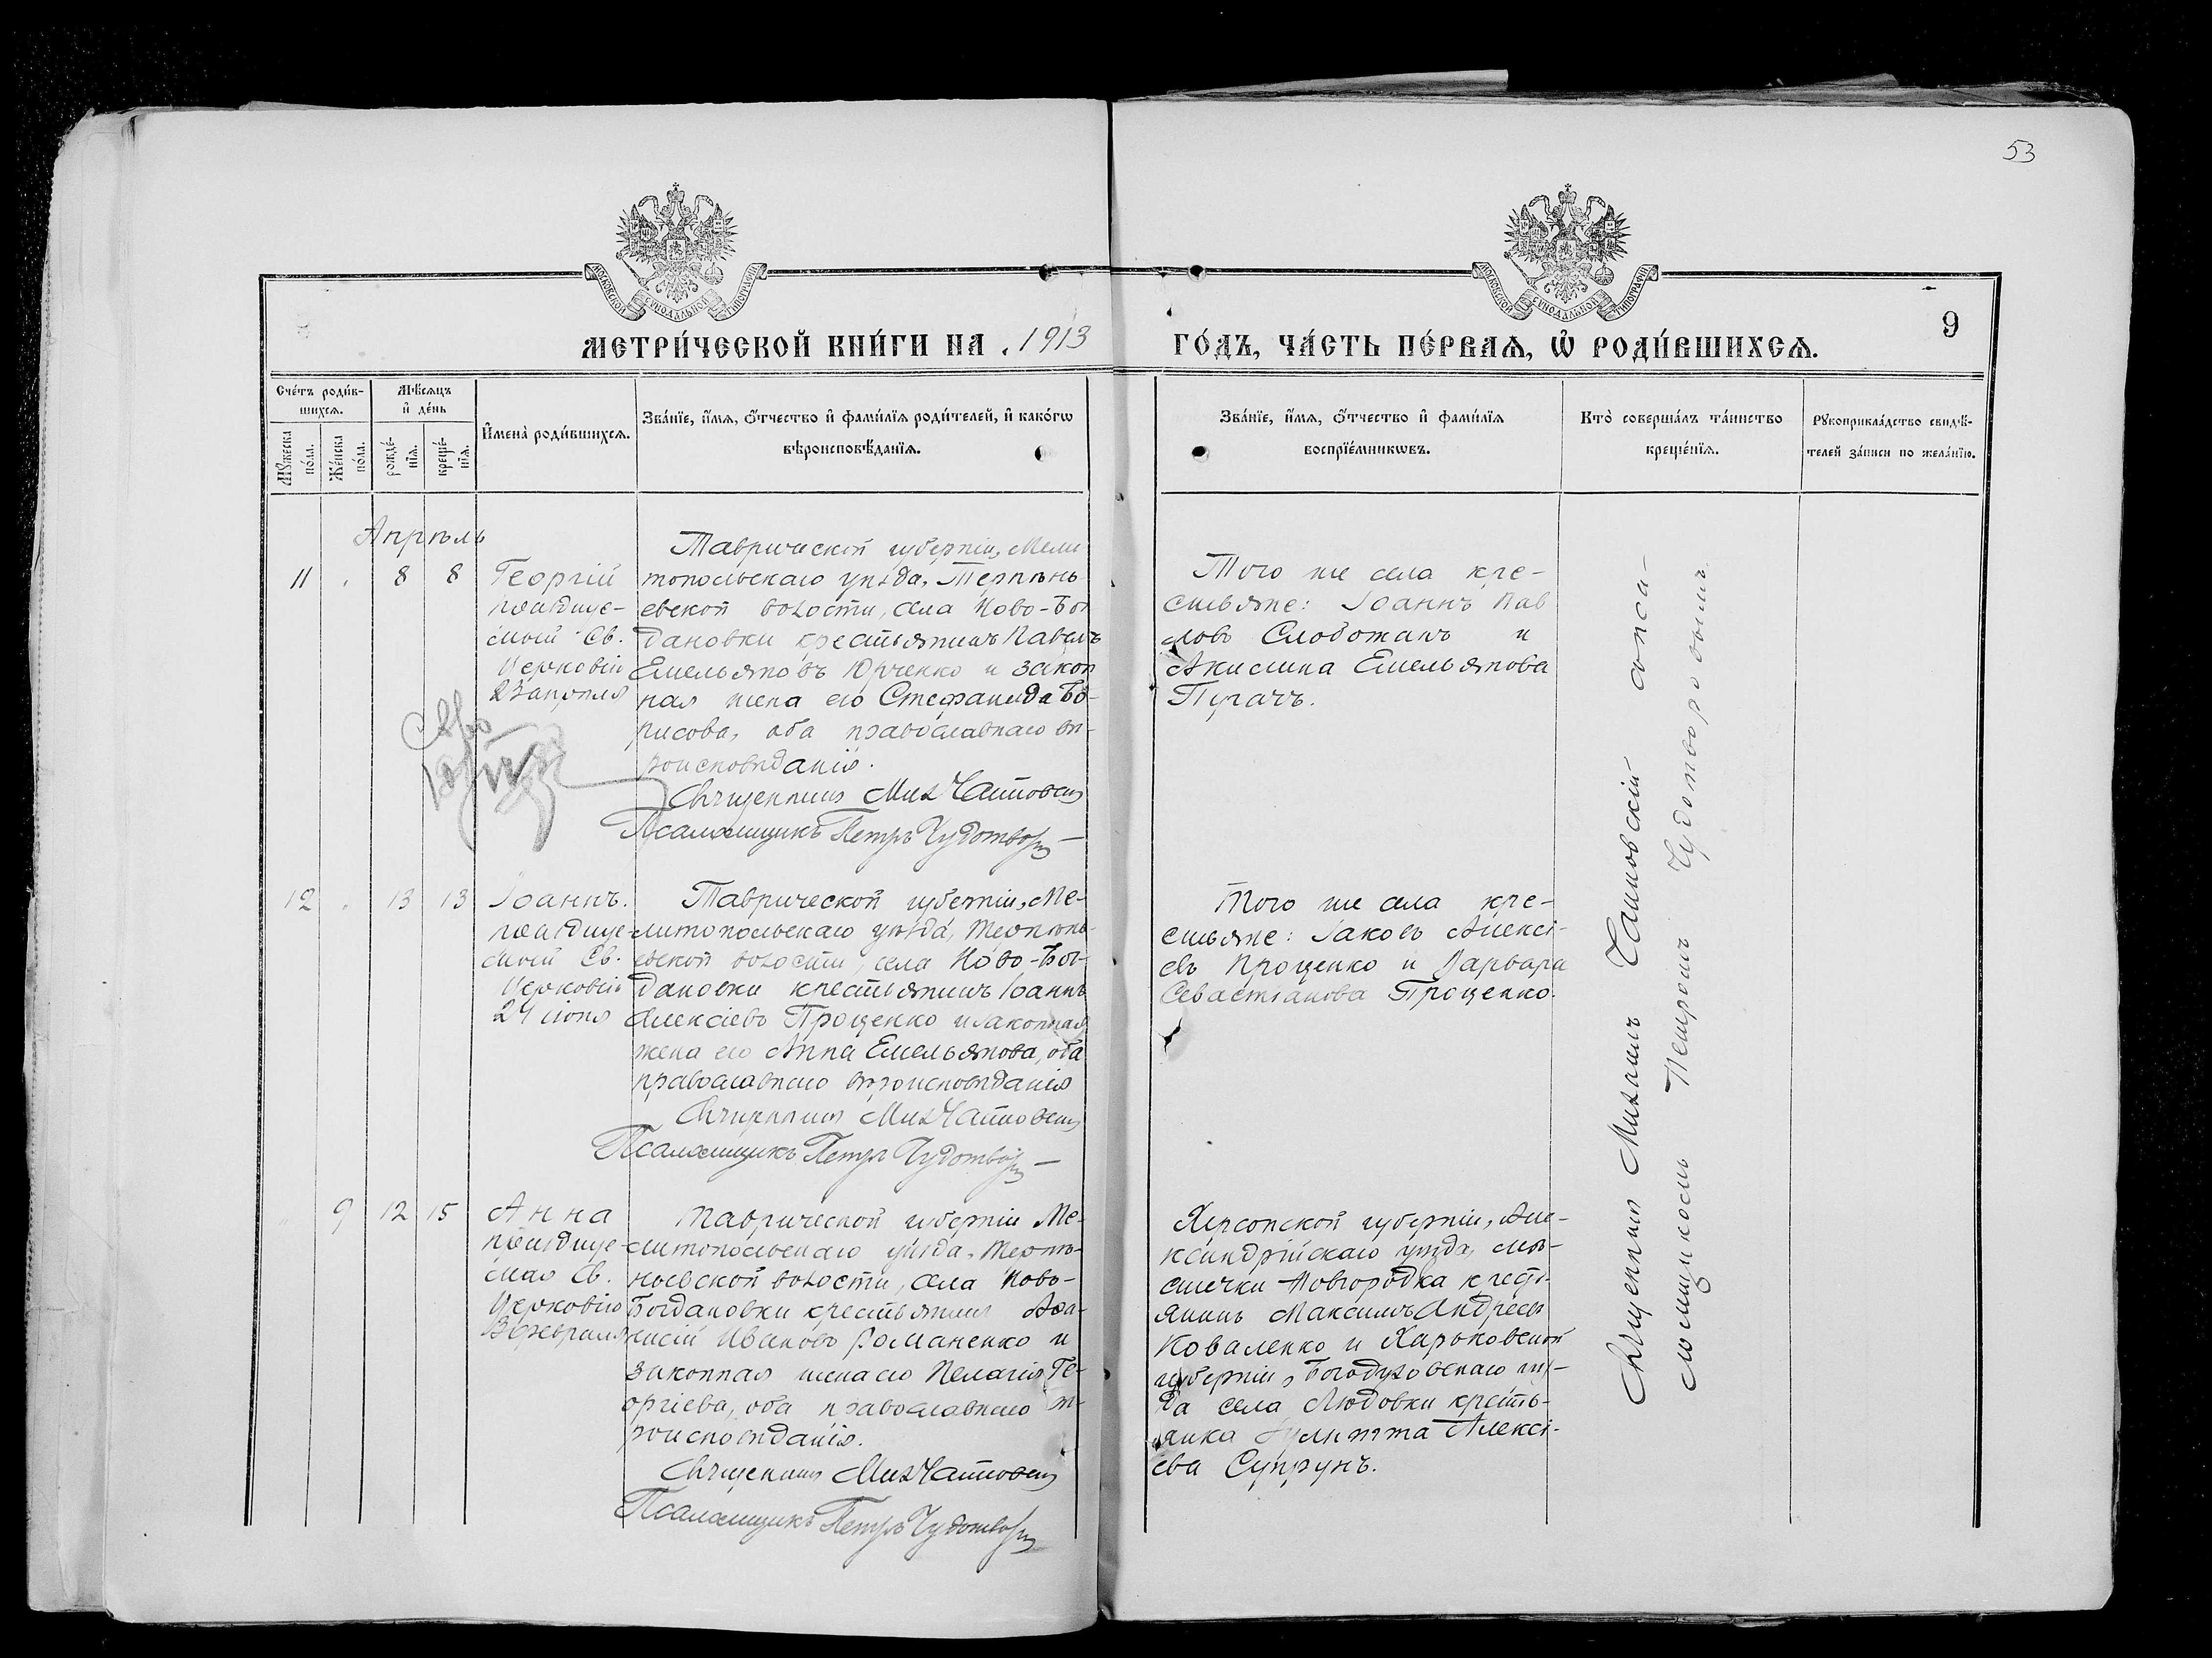 53
МОСКОВСКОЙ СѴНОДАЛЬНОЙ ТИПОГРАФІИ
МОСКОВСКОЙ СѴНОДАЛЬНОЙ ТИПОГРАФІИ
МЕТРИ́ЧЕСКОЙ КНИ́ГИ НА 1913
ГО́ДЪ, ЧА́СТЬ ПЕ́РВАѦ, Ѡ҆ РОДИ́ВШИХСѦ.
9
Сче́тъ роди́в-
шихсѧ.
Мѣ́сѧцъ
и҆ де́нь
Мꙋ́жеска
по́ла.
Же́нска
по́ла.
рожде́-
нїѧ.
креще́-
нїѧ.
И҆мена̀ роди́вшихсѧ.
Зва́нїе, и҆́мѧ, ѻ҆́тчество и҆ фами́лїѧ роди́телей, и҆ како́гѡ
вѣроисповѣ́данїѧ.
Зва́нїе, и҆́мѧ, ѻ҆́тчество и҆ фами́лїѧ
воспрїе́мникѡвъ.
Кто̀ соверша́лъ та́инство
креще́нїѧ.
Рꙋкоприкла́дство свидѣ́-
телей за́писи по жела́нїю.
Апрѣль
11 8 8 Георгій
празднуе-
мый Св.
Церковію
23 апрѣля
Таврической губерніи, Мели
топольскаго уѣзда, Терпѣнь
евской волости, села Ново-Бог
дановки крестьянинъ Павелъ
Емельяновъ Юрченко и закон
ная жена его Стефанида Бо-
рисова, оба православнаго вѣ-
роисповѣданія.
Священникъ Мих Чайковскій
Псаломщикъ Петръ Чудотвор
Того же села кре-
стьяне: Іоаннъ Пав
ловъ Слобожанъ и
Акилина Емельянова
Пугачъ.
12 13 13 Іоаннъ.
празднуе-
мый Св.
Церковію
24 іюня
Таврической губерніи, Ме-
литопольскаго уѣзда, Терпѣнь-
евской волости, села Ново-Бог-
дановки крестьянинъ Іоаннъ
Алексіевъ Проценко и законная
жена его Анна Емельянова, оба
православнаго вѣроисповѣданія
Священникъ Мих Чайковскій
Псаломщикъ Петръ Чудотвор
Того же села кре-
стьяне: Іаковъ Алексі-
евъ Проценко и Варвара
Севастіанова Проценко.
9 12 15 Анна
празднуе-
мая Св.
Церковію
3 февраля
Таврической губерніи Ме-
литопольскаго уѣзда, Терпѣ-
ньевской волости, села Ново-
Богдановки крестьянинъ Аѳа-
насій Ивановъ Романенко и
законная жена его Пелагія Ге-
оргіева, оба православнаго вѣ-
роисповѣданія.
Священникъ Мих Чайковскій
Псаломщикъ Петръ Чудотвор
Херсонской губерніи, Але-
ксандрійскаго уѣзда, мѣ-
стечки Новгородка крестъ-
янинъ Максимъ Андреевъ
Коваленко и Харьковской
губерніи, Богодуховскаго уѣз-
да села Людовки кресть-
янка Алексі-
ева Супрунъ.
Священникъ Михаилъ Чайковскій съ пса-
ломщикомъ Петромъ Чудотворовымъ